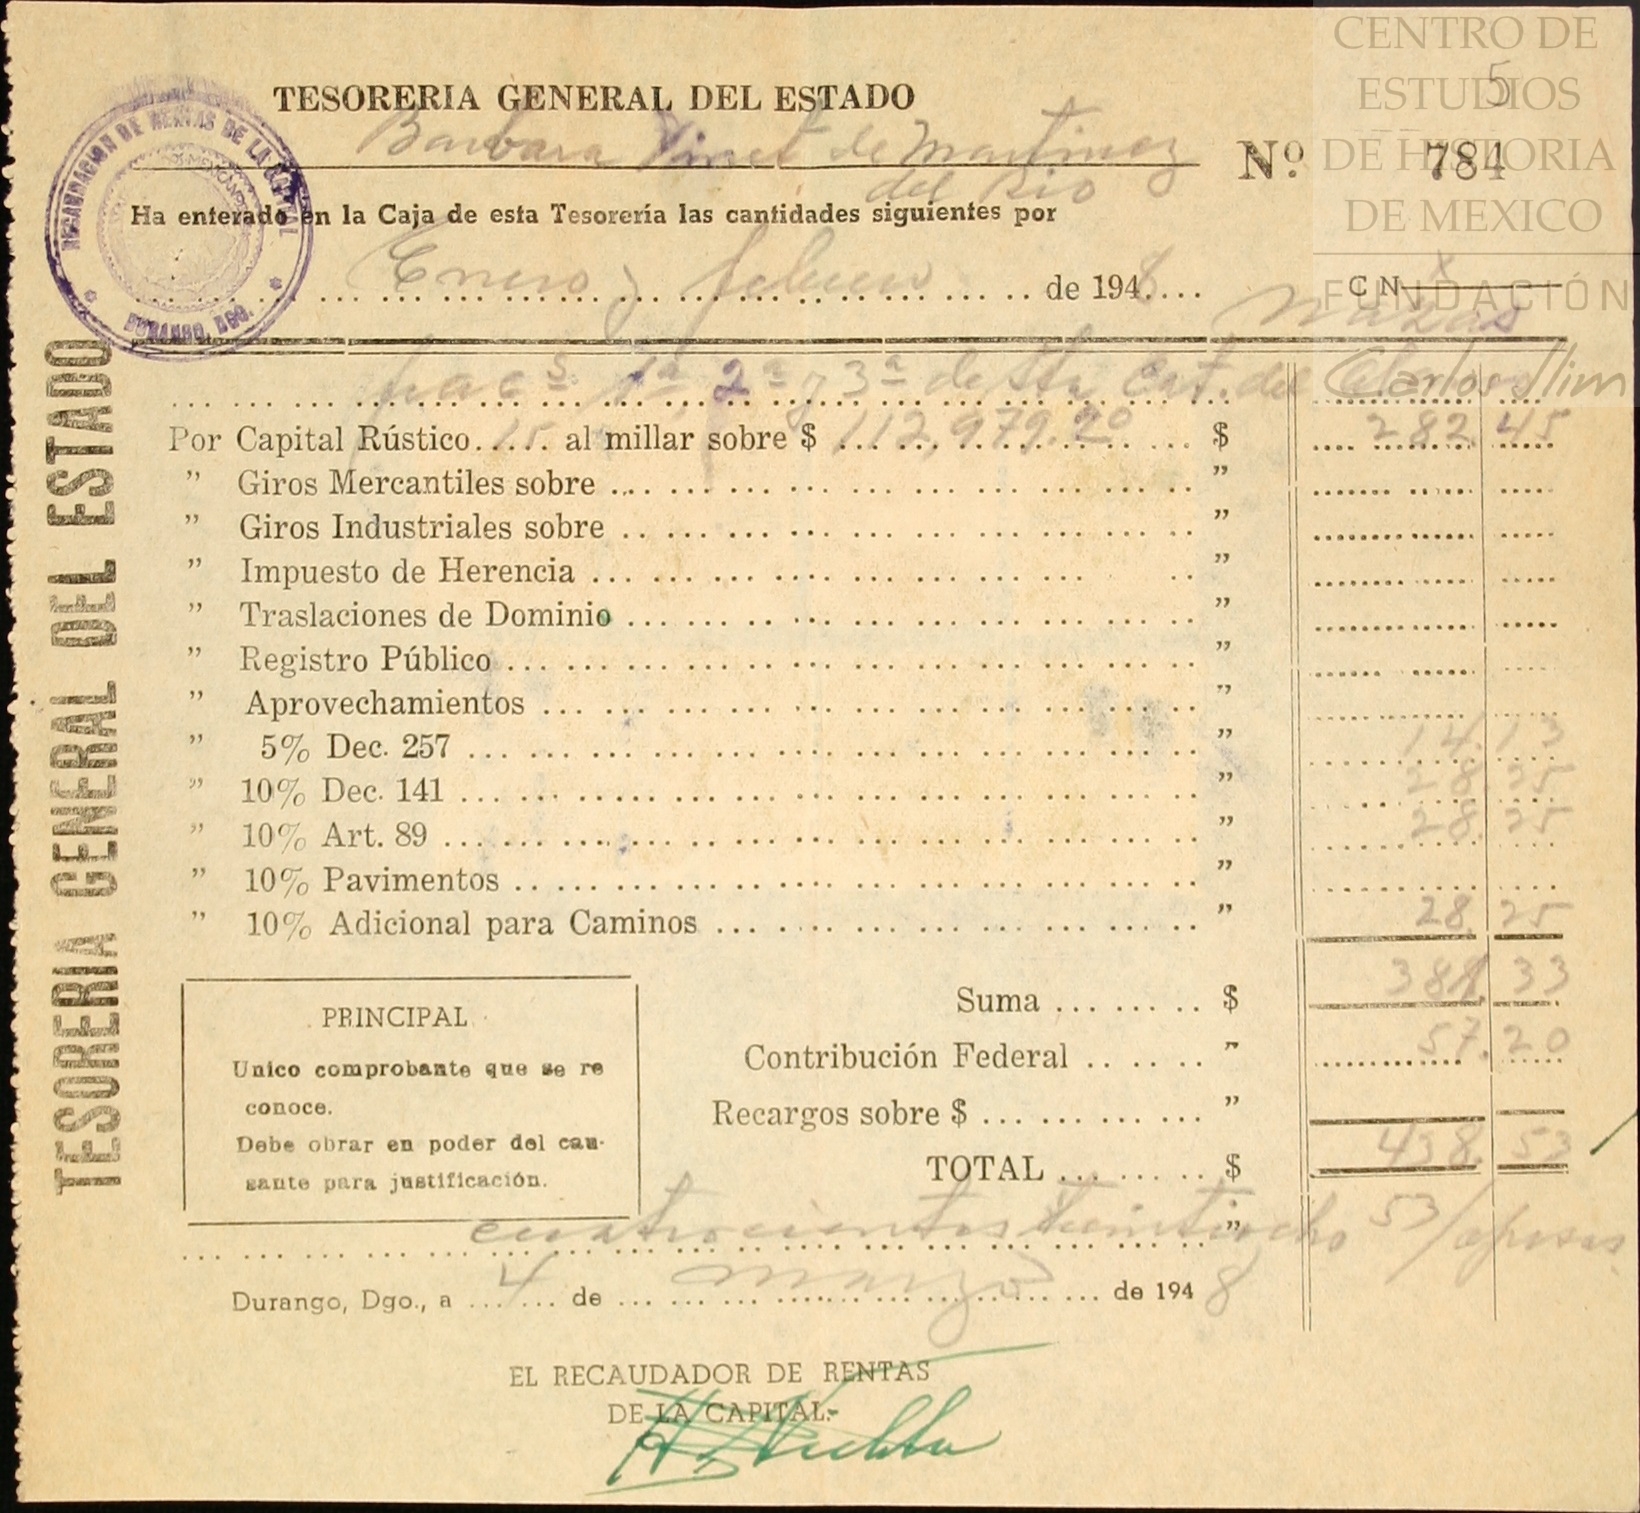 CENTRO DE
ESTUDIOS
DE HISTORIA
DE MEXICO
FUNDACIÓN
Carlos Slim
5
TESORERIA GENERAL DEL ESTADO
Barbara Vinet de Martinez
del Rio
Nº 784
RECAUDACION DE RENTAS DE LA CAPITAL
DURANGO, DGO.
Ha enterado en la Caja de esta Tesorería las cantidades siguientes por
Enero y febrero de 1948
C N
Nazas
1ª, 2ª y 3ª de Sta Cat. del
Por Capital Rústico 15 al millar sobre $ 112.979.20 $ 282.45
" Giros Mercantiles sobre "
" Giros Industriales sobre "
" Impuesto de Herencia "
" Traslaciones de Dominio "
" Registro Público "
" Aprovechamientos "
" 5% Dec. 257 " 14.13
" 10% Dec. 141 " 28.25
" 10% Art. 89 " 28.25
" 10% Pavimentos "
" 10% Adicional para Caminos " 28.25
Suma $ 381.33
Contribución Federal " 57.20
Recargos sobre $ "
TOTAL $ 438.53
PRINCIPAL
Unico comprobante que se re
conoce.
Debe obrar en poder del cau-
sante para justificación.
cuatrocientos treintiocho 53/ pesos
"
Durango, Dgo., a 4 de marzo de 1948
EL RECAUDADOR DE RENTAS
DE LA CAPITAL.-
TESORERIA GENERAL DEL ESTADO